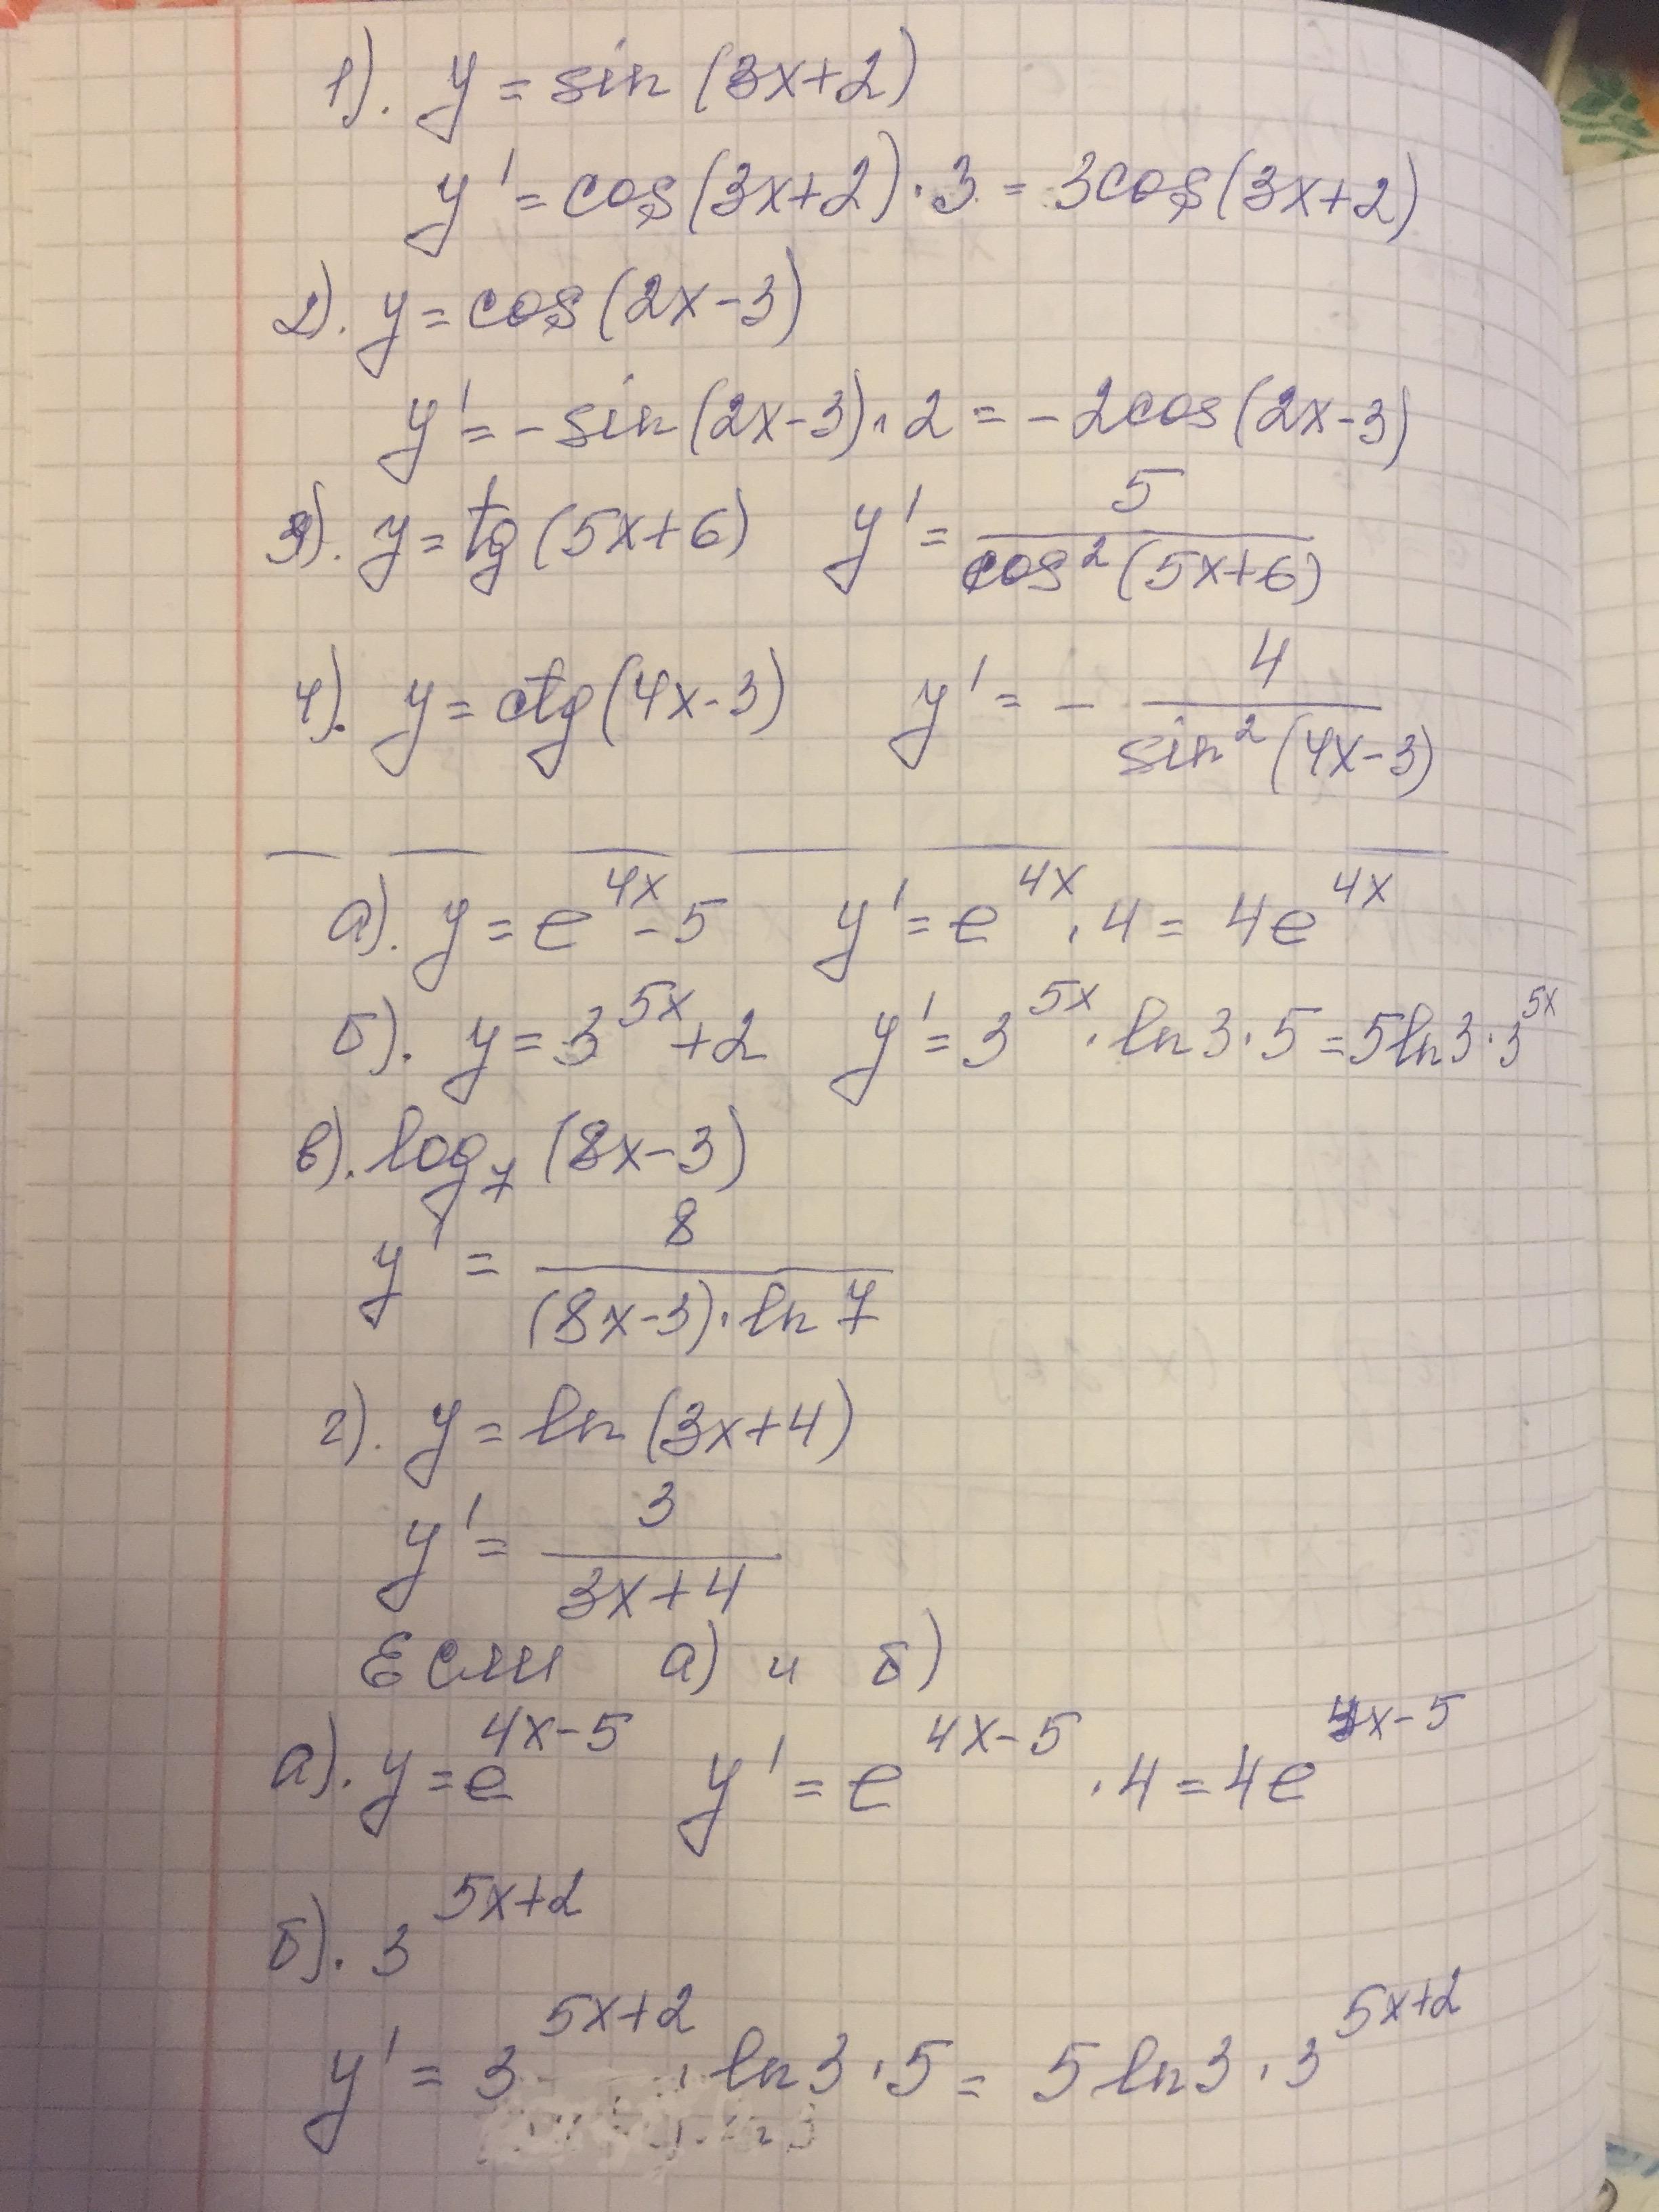 1). y = sin (3x+2)
y' = cos(3x+2)·3 = 3cos(3x+2)
2). y = cos(2x-3)
y' = -sin(2x-3)·2 = -2cos(2x-3)
3). y = tg(5x+6) y' = 5/cos²(5x+6)
4). y = ctg(4x-3) y' = - 4/sin²(4x-3)
а). y = e^{4x} - 5 y' = e^{4x}·4 = 4e^{4x}
б). y = 3^{5x} + 2 y' = 3^{5x}·ln3·5 = 5ln3·3^{5x}
в). log₇ (8x-3)
y' = 8/((8x-3)·ln7)
г). y = ln (3x+4)
y' = 3/(3x+4)
Если а) и б)
а). y = e^{4x-5} y' = e^{4x-5}·4 = 4e^{4x-5}
б). 3^{5x+2}
y' = 3^{5x+2}·ln3·5 = 5ln3·3^{5x+2}